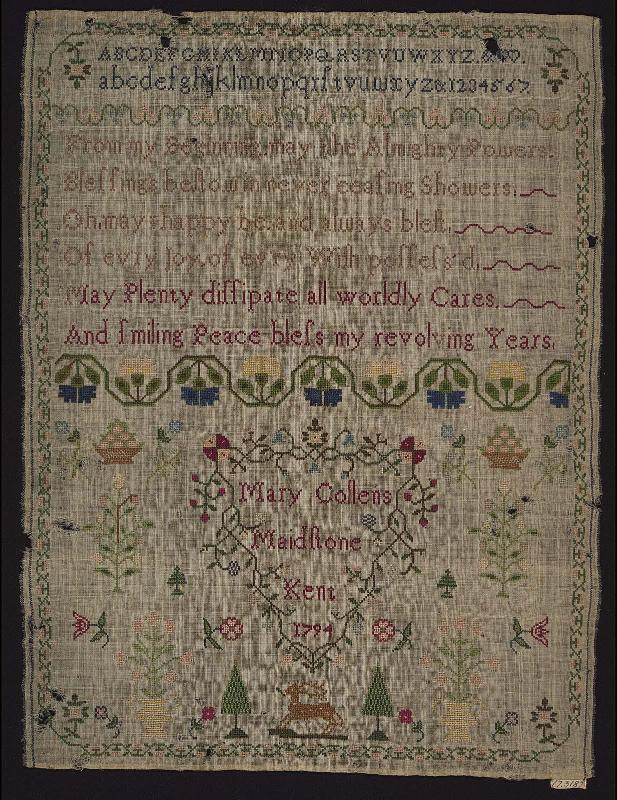 ABCDEFGHIKLMNOPQRSTVUWXYZ.
abcdefghijklmnopqrſtvuwxyz&1234567.
From my Begining may the Almighty Powers.
Bleſſings beſtow in never ceaſing Showers.
Oh, may I happy be, and always bleſt.
Of ev'ry Joy, of ev'ry Wiſh poſſeſs'd.
May Plenty diſſipate all worldly Cares.
And ſmiling Peace bleſs my revolving Years.
Mary Collens
Maidſtone
Kent
1794